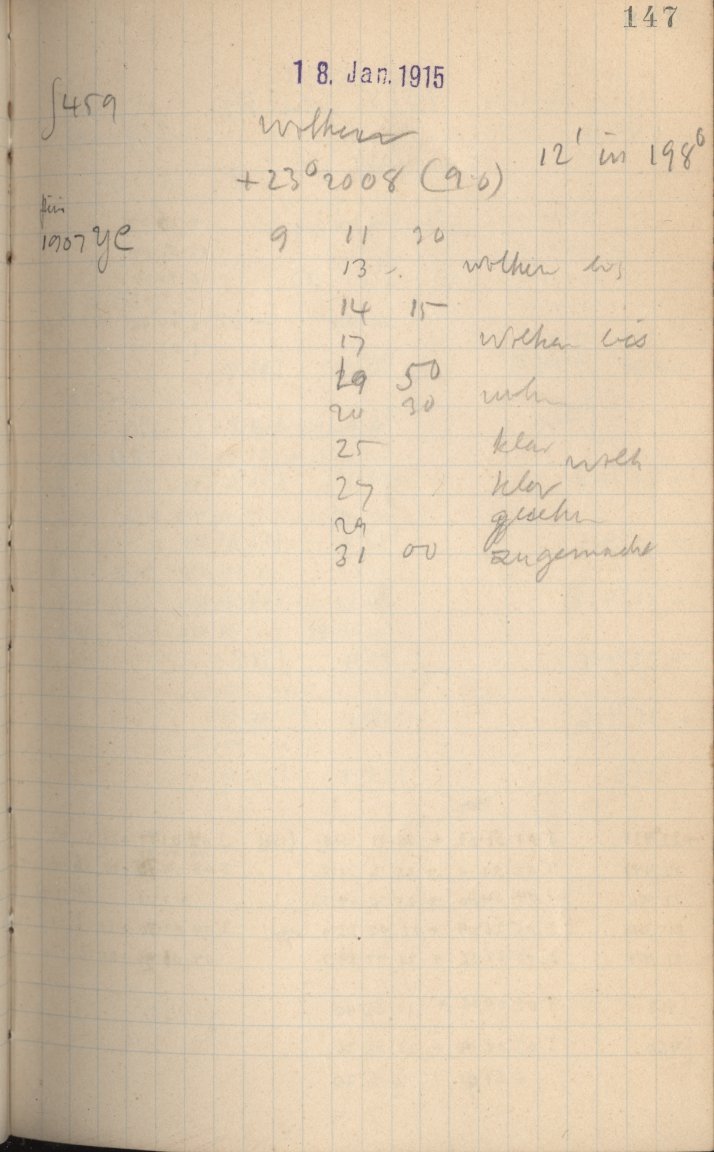 147
18. Jan. 1915
∫459
Wolken
12' in 198°
+23°2008 (9.0)
für
1907 YC
9 11 30
13 Wolken bis
14 15
17 Wolken bis
19 50
20 30
25 klar wolk
27 klar
29 gesehn
31 00 zugemacht